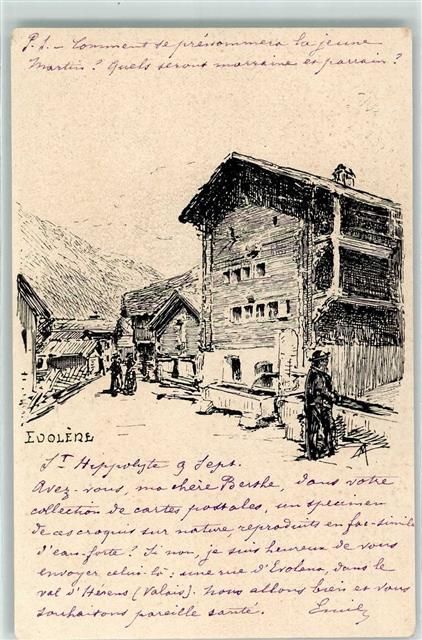 P.S. – Comment se prénommera la jeune
Martin? Quels seront marraine et parrain?
EVOLÈNE
St Hippolyte 9 Sept.
Avez-vous, ma chère Berthe, dans votre
collection de cartes postales, un specimen
de ces croquis sur nature, reproduits en fac-simile
d'eau-forte? Si non, je suis heureux de vous
envoyer celui-là: une rue d'Evolena, dans le
val d'Hérens (Valais). Nous allons bien et vous
souhaitons pareille santé. Emile